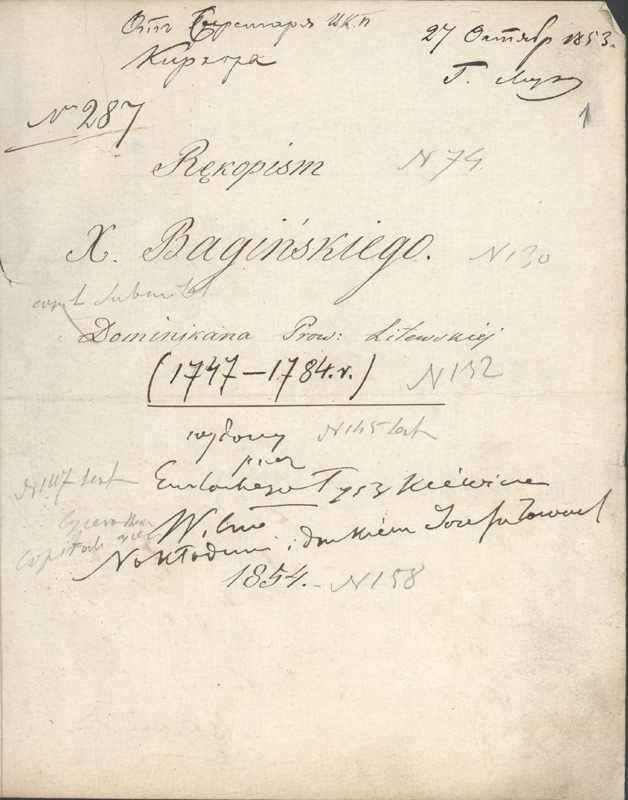 Отъ Секретаря И.К.П
Киркора
27 Октябр 1853.
1
№ 287
Rękopism
N 74
X. Bagińskiego.
N 130
Dominikana Prow: Litewskiéj
(1747—1784.r.)
N 132
wydany
N 145
przez
N 147
Eustachego Tyszkiewicza
Wilno
Nakładem i drukiem Józefa Zawadz
1854.
N 158